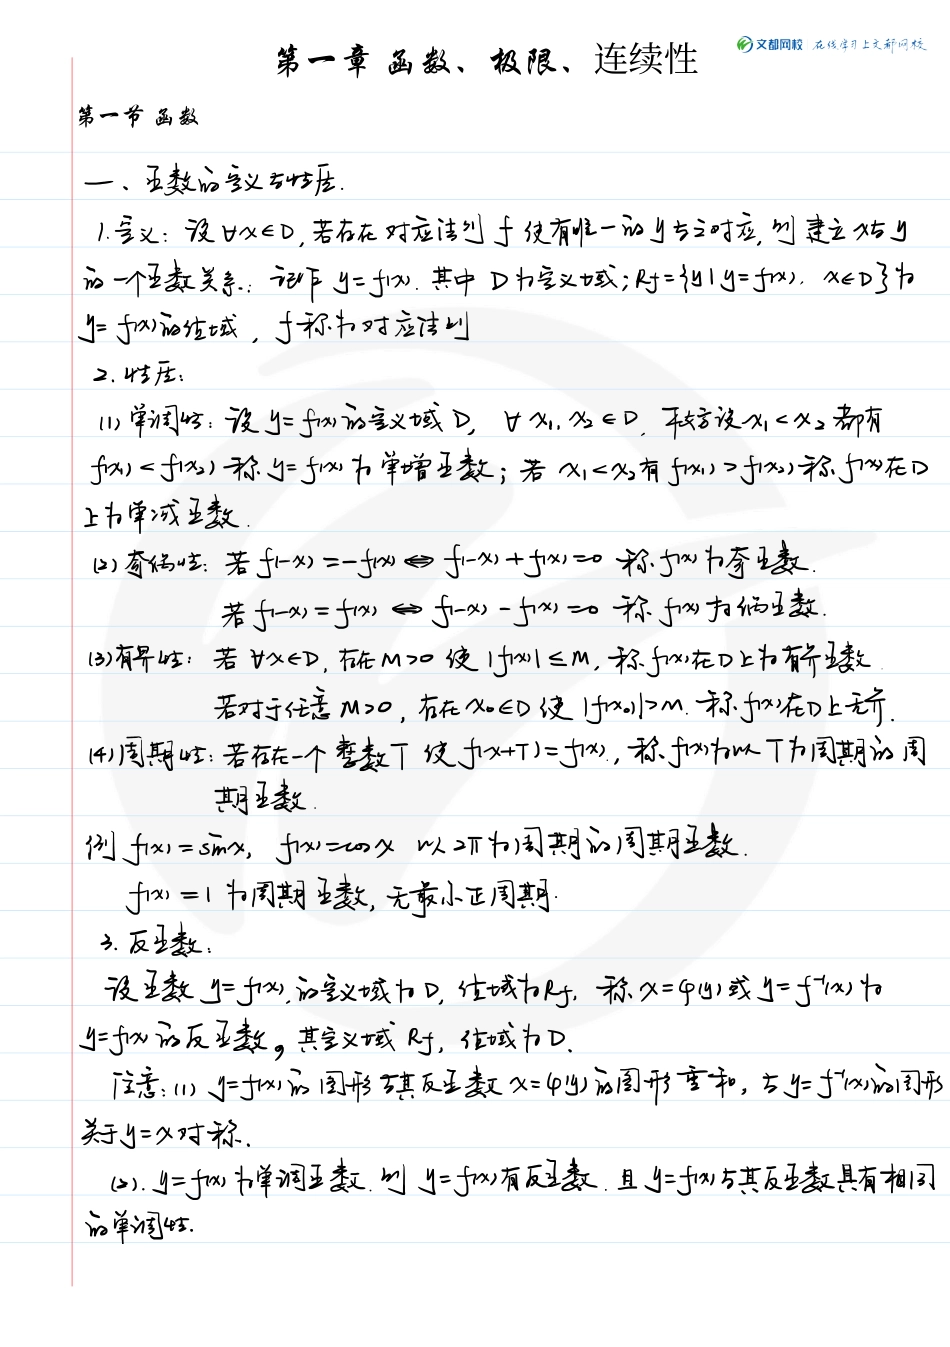 文都网校 在线学习上文都网校
第一章 函数、极限、连续性
第一节 函数
一、函数的定义与性质.
1.定义：设∀x∈D,若存在对应法则 f 使有唯一的y与之对应,则建立x与y
的一个函数关系.：记作 y=f(x). 其中 D为定义域;Rf={y|y=f(x), x∈D}为
y=f(x)的值域，f称为对应法则
2.性质：
(1)单调性：设y=f(x)的定义域D, ∀x₁,x₂∈D. 不妨设x₁<x₂都有
f(x₁)<f(x₂)称y=f(x)为单增函数；若x₁<x₂有f(x₁)>f(x₂)称f(x)在D
上为单减函数.
(2)奇偶性：若f(-x)=-f(x)⇔f(-x)+f(x)=0 称f(x)为奇函数.
若f(-x)=f(x)⇔f(-x)-f(x)=0 称f(x)为偶函数.
(3)有界性：若∀x∈D,存在M>0使|f(x)|≤M,称f(x)在D上为有界函数.
若对于任意M>0,存在x₀∈D使|f(x₀)|>M.称f(x)在D上无界.
(4)周期性：若存在一个整数T使f(x+T)=f(x),称f(x)为以T为周期的周
期函数.
例 f(x)=sinx, f(x)=cosx 以2π为周期的周期函数.
f(x)=1 为周期函数,无最小正周期.
3.反函数：
设函数y=f(x).的定义域为D,值域为Rf. 称x=φ(y)或y=f⁻¹(x)为
y=f(x)的反函数。其定义域Rf,值域为D.
注意：(1) y=f(x)的图形与其反函数x=φ(y)的图形重和，与y=f⁻¹(x)的图形
关于y=x对称.
(2). y=f(x)为单调函数.则y=f(x)有反函数.且y=f(x)与其反函数具有相同
的单调性.